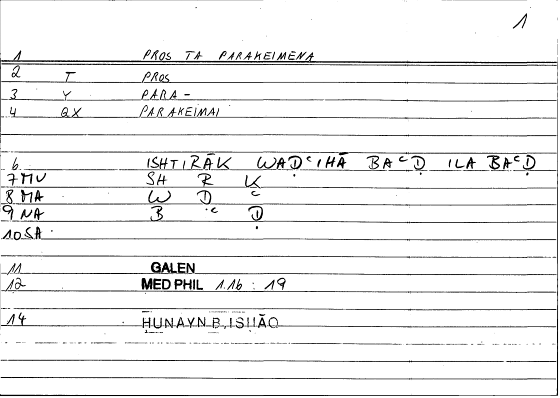 1
1 PROS TA PARAKEIMENA
2 T PROS
3 Y PARA-
4 QX PARAKEIMAI
6 ISHTIRĀK WAḌᶜIHĀ BAᶜḌ ILA BAᶜḌ
7 MU SH R K
8 MA W Ḍ ᶜ
9 NA B ᶜ Ḍ
10 SA
11 GALEN
12 MED PHIL 1.16 : 19
14 HUNAYN B. ISHĀQ